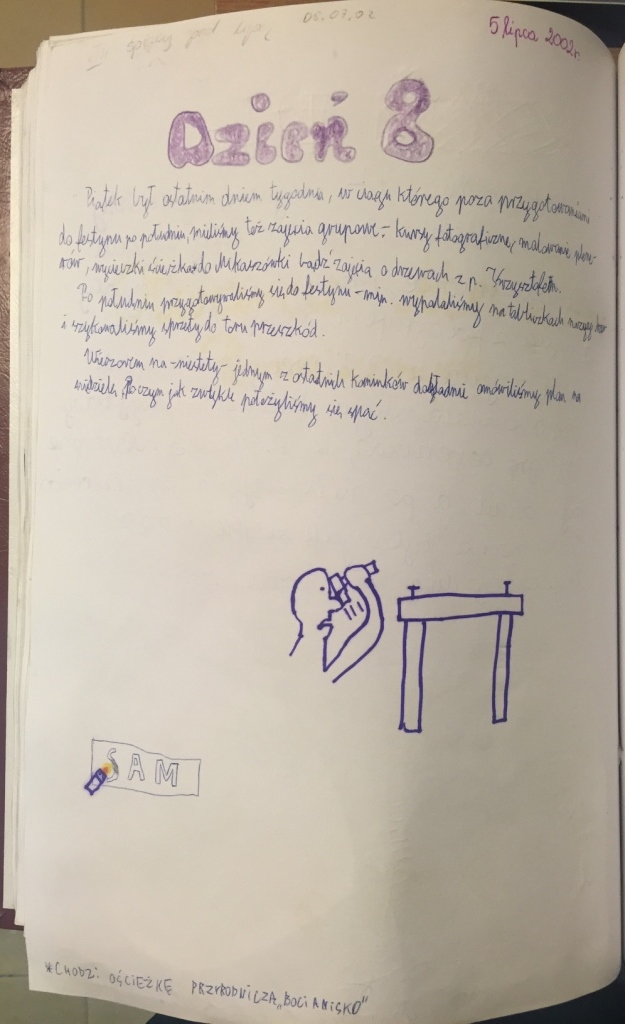 05.07.02
5 lipca 2002r.
Dzień 8
Piątek był ostatnim dniem tygodnia, w ciągu którego poza przygotowaniami
do festynu po południu, mieliśmy też zajęcia grupowe - kursy fotograficzne, malowanie plene-
rów, wycieczki ścieżką* do Mikaszówki bądź zajęcia o drzewach z p. Krzysztofem.
Po południu przygotowywaliśmy się do festynu - m.in. wypalaliśmy na tabliczkach nazwy
i szykowaliśmy sprzęty do toru przeszkód.
Wieczorem na - niestety - jednym z ostatnich kominków dokładnie omówiliśmy plan na
niedzielę, po czym jak zwykle położyliśmy się spać.
SAM
*CHODZI O ŚCIEŻKĘ PRZYRODNICZĄ „BOCIANISKO"